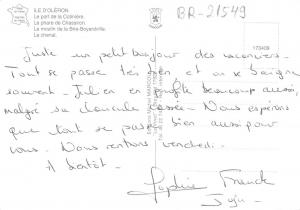 ILE D'OLÉRON
Le port de la Cotinière.
Le phare de Chassiron.
Le moulin de la Brie-Boyardville.
Le chenal.
BR-21549
173409
Juste un petit bonjour des vacanciers.
Tout se passe très bien et on se baigne
souvent. Julien en profite beaucoup aussi,
malgré sa clavicule cassée. Nous espérons
que tout se passe bien aussi pour
vous. Nous rentrons vendredi.
A bientôt.
Sophie Franck
Juju.